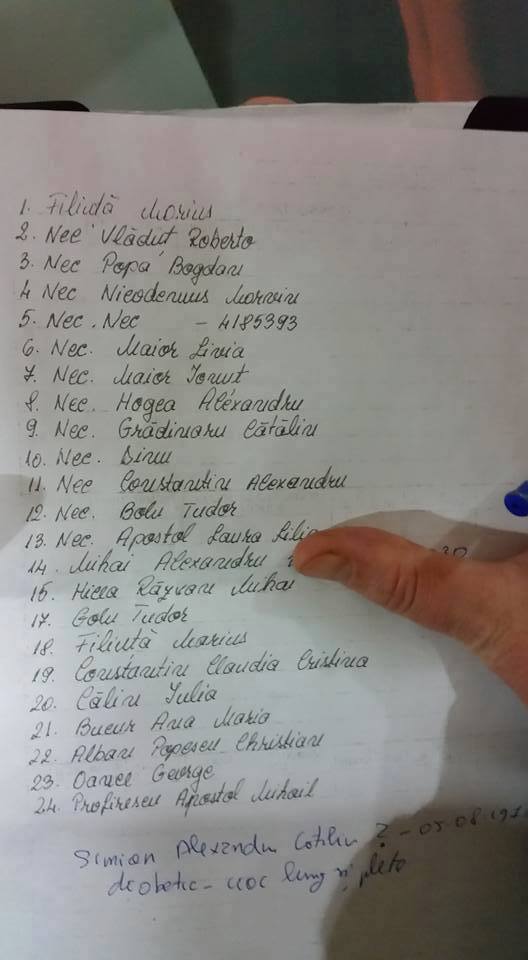 1. Filiută Marius
2. Nec Vlăduț Roberto
3. Nec Popa Bogdan
4 Nec Nicodemus Marvin
5. Nec. Nec - 4185393
6. Nec. Maior Livia
7. Nec. Maior Ionut
8. Nec. Hogea Alexandru
9. Nec. Grădinaru Cătălin
10. Nec. Dinu
11. Nec Constantin Alexandru
12. Nec. Bolu Tudor
13. Nec. Apostol Laura
14. Mihai Alexandru
15. Hicea Răzvan Mihai
17. Golu Tudor
18. Filiută Marius
19. Constantin Claudia Cristina
20. Călin Iulia
21. Bucur Ana Maria
22. Alban Popescu Christian
23. Oance George
24. Profirescu Apostol Mihail
Simion Alexandru ? - 05.08.
diabetic - cioc lung